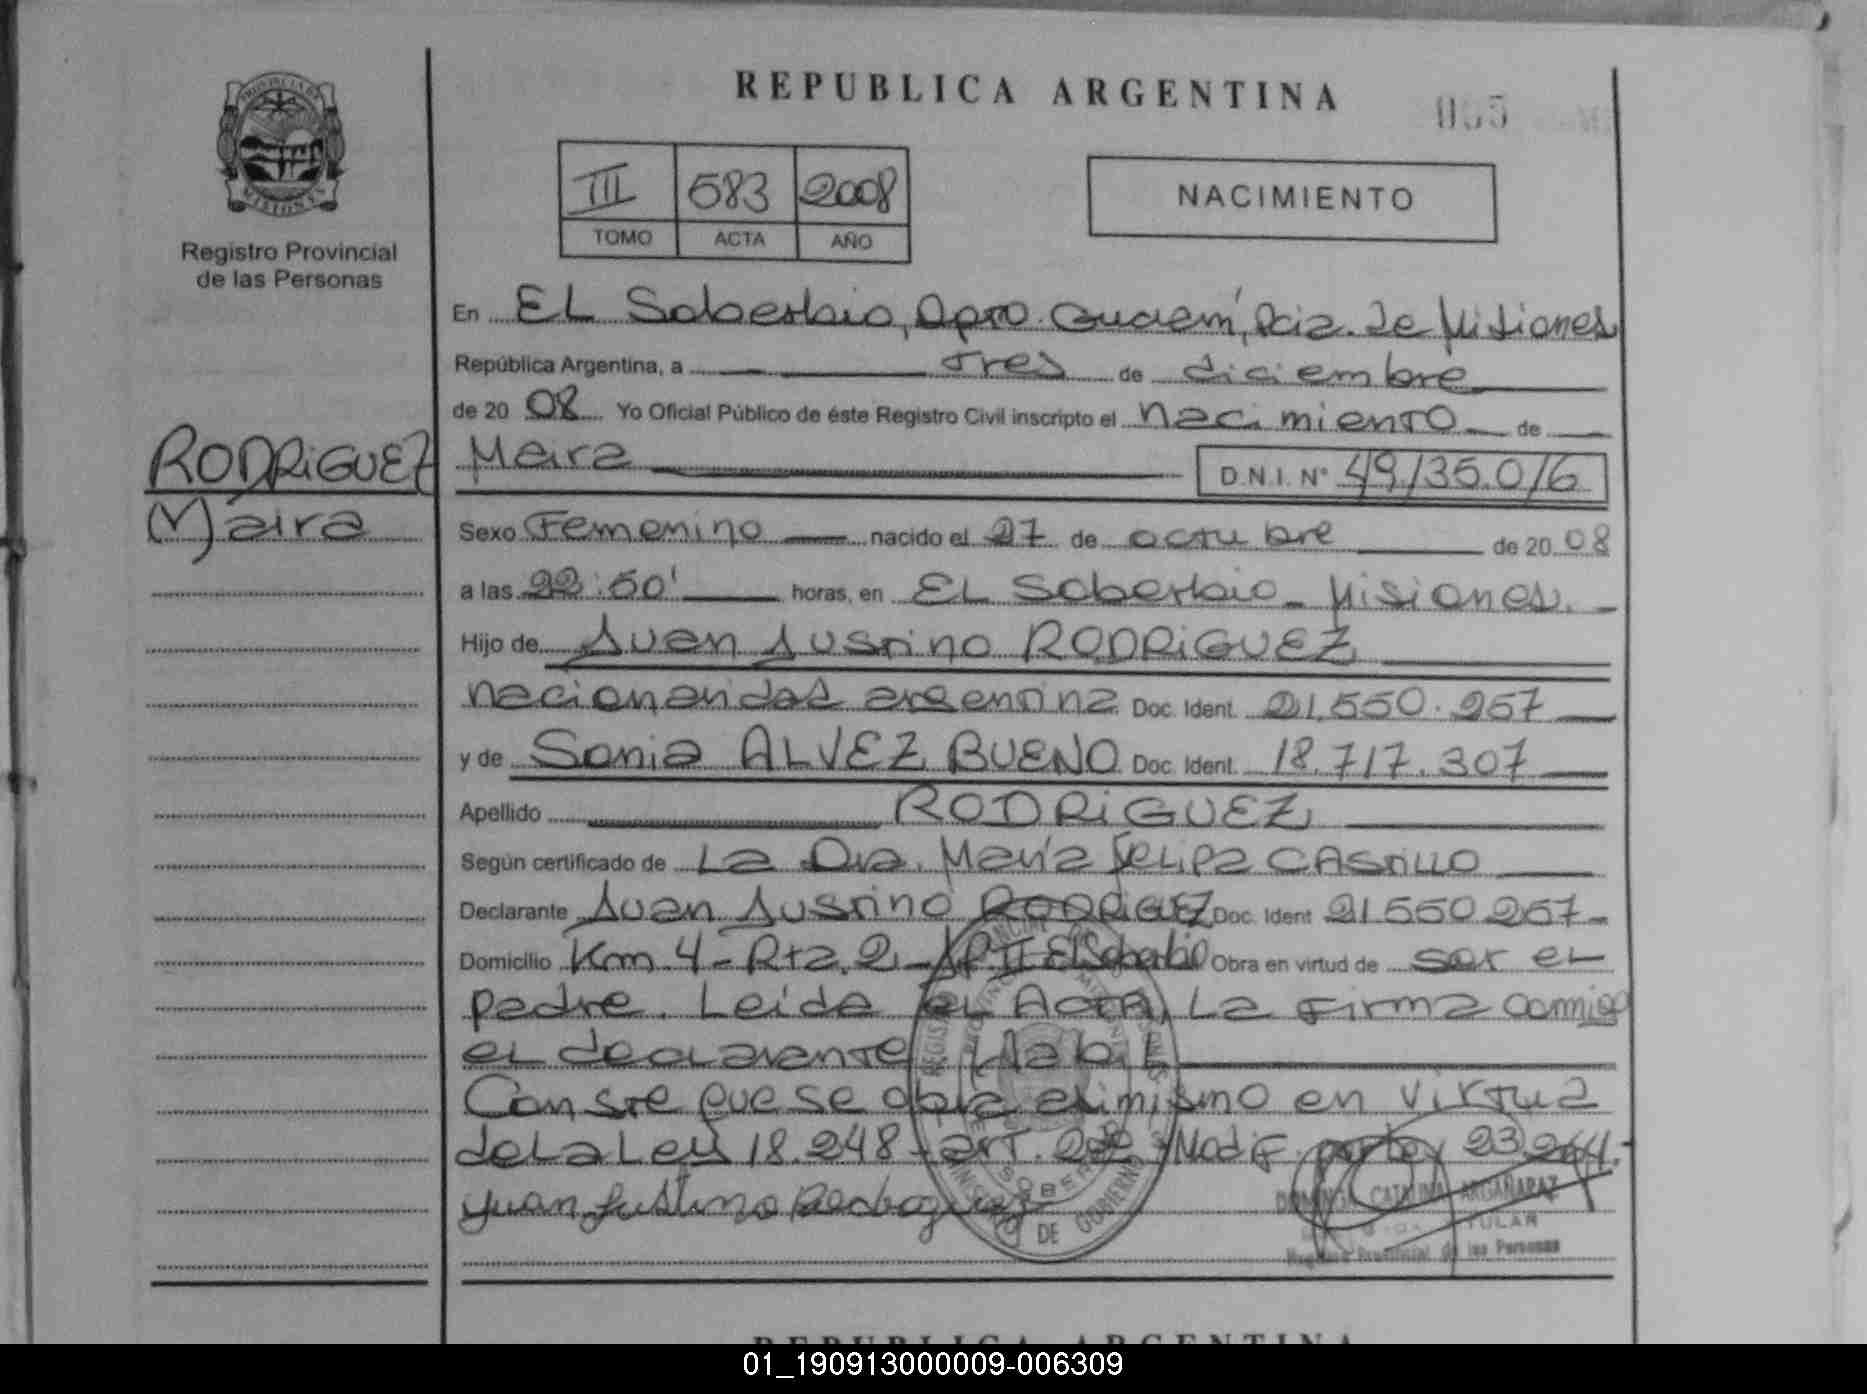 REPUBLICA ARGENTINA
055
PROVINCIA DE
MISIONES
Registro Provincial
de las Personas
III 583 2008
TOMO ACTA AÑO
NACIMIENTO
En EL Soberbio, Dpto. Guaraní, Pcia. de Misiones
República Argentina, a tres de diciembre
de 20 08 Yo Oficial Público de éste Registro Civil inscripto el nacimiento de
RODRiGUEZ
Maira
Maira D.N.I. Nº 49.135.016
Sexo Femenino nacido el 27 de octubre de 20 08
a las 22:50' horas, en EL Soberbio - Misiones.
Hijo de Juan Justino RODRiGUEZ
argentina Doc. Ident. 21.550.257
y de Sonia ALVEZ BUENO Doc. Ident. 18.717.307
Apellido RODRiGUEZ
Según certificado de La Dra. María Felipa CASTILLO
Declarante Juan Justino RODRiGUEZ Doc. Ident 21550257
Domicilio Km 4 - Rta. 2 - El Soberbio Obra en virtud de ser el
padre. Leida el Acta, La firma conmigo
el declarante Habil
Conste que se obra en virtud
de La Ley 18.248 - art. Modif. por Ley 23.264.-
Juan Justino Rodriguez
CATALINA ARGAÑARAZ
TITULAR
Registro Provincial de las Personas
DE GOBIERNO
REPUBLICA ARGENTINA
01_190913000009-006309